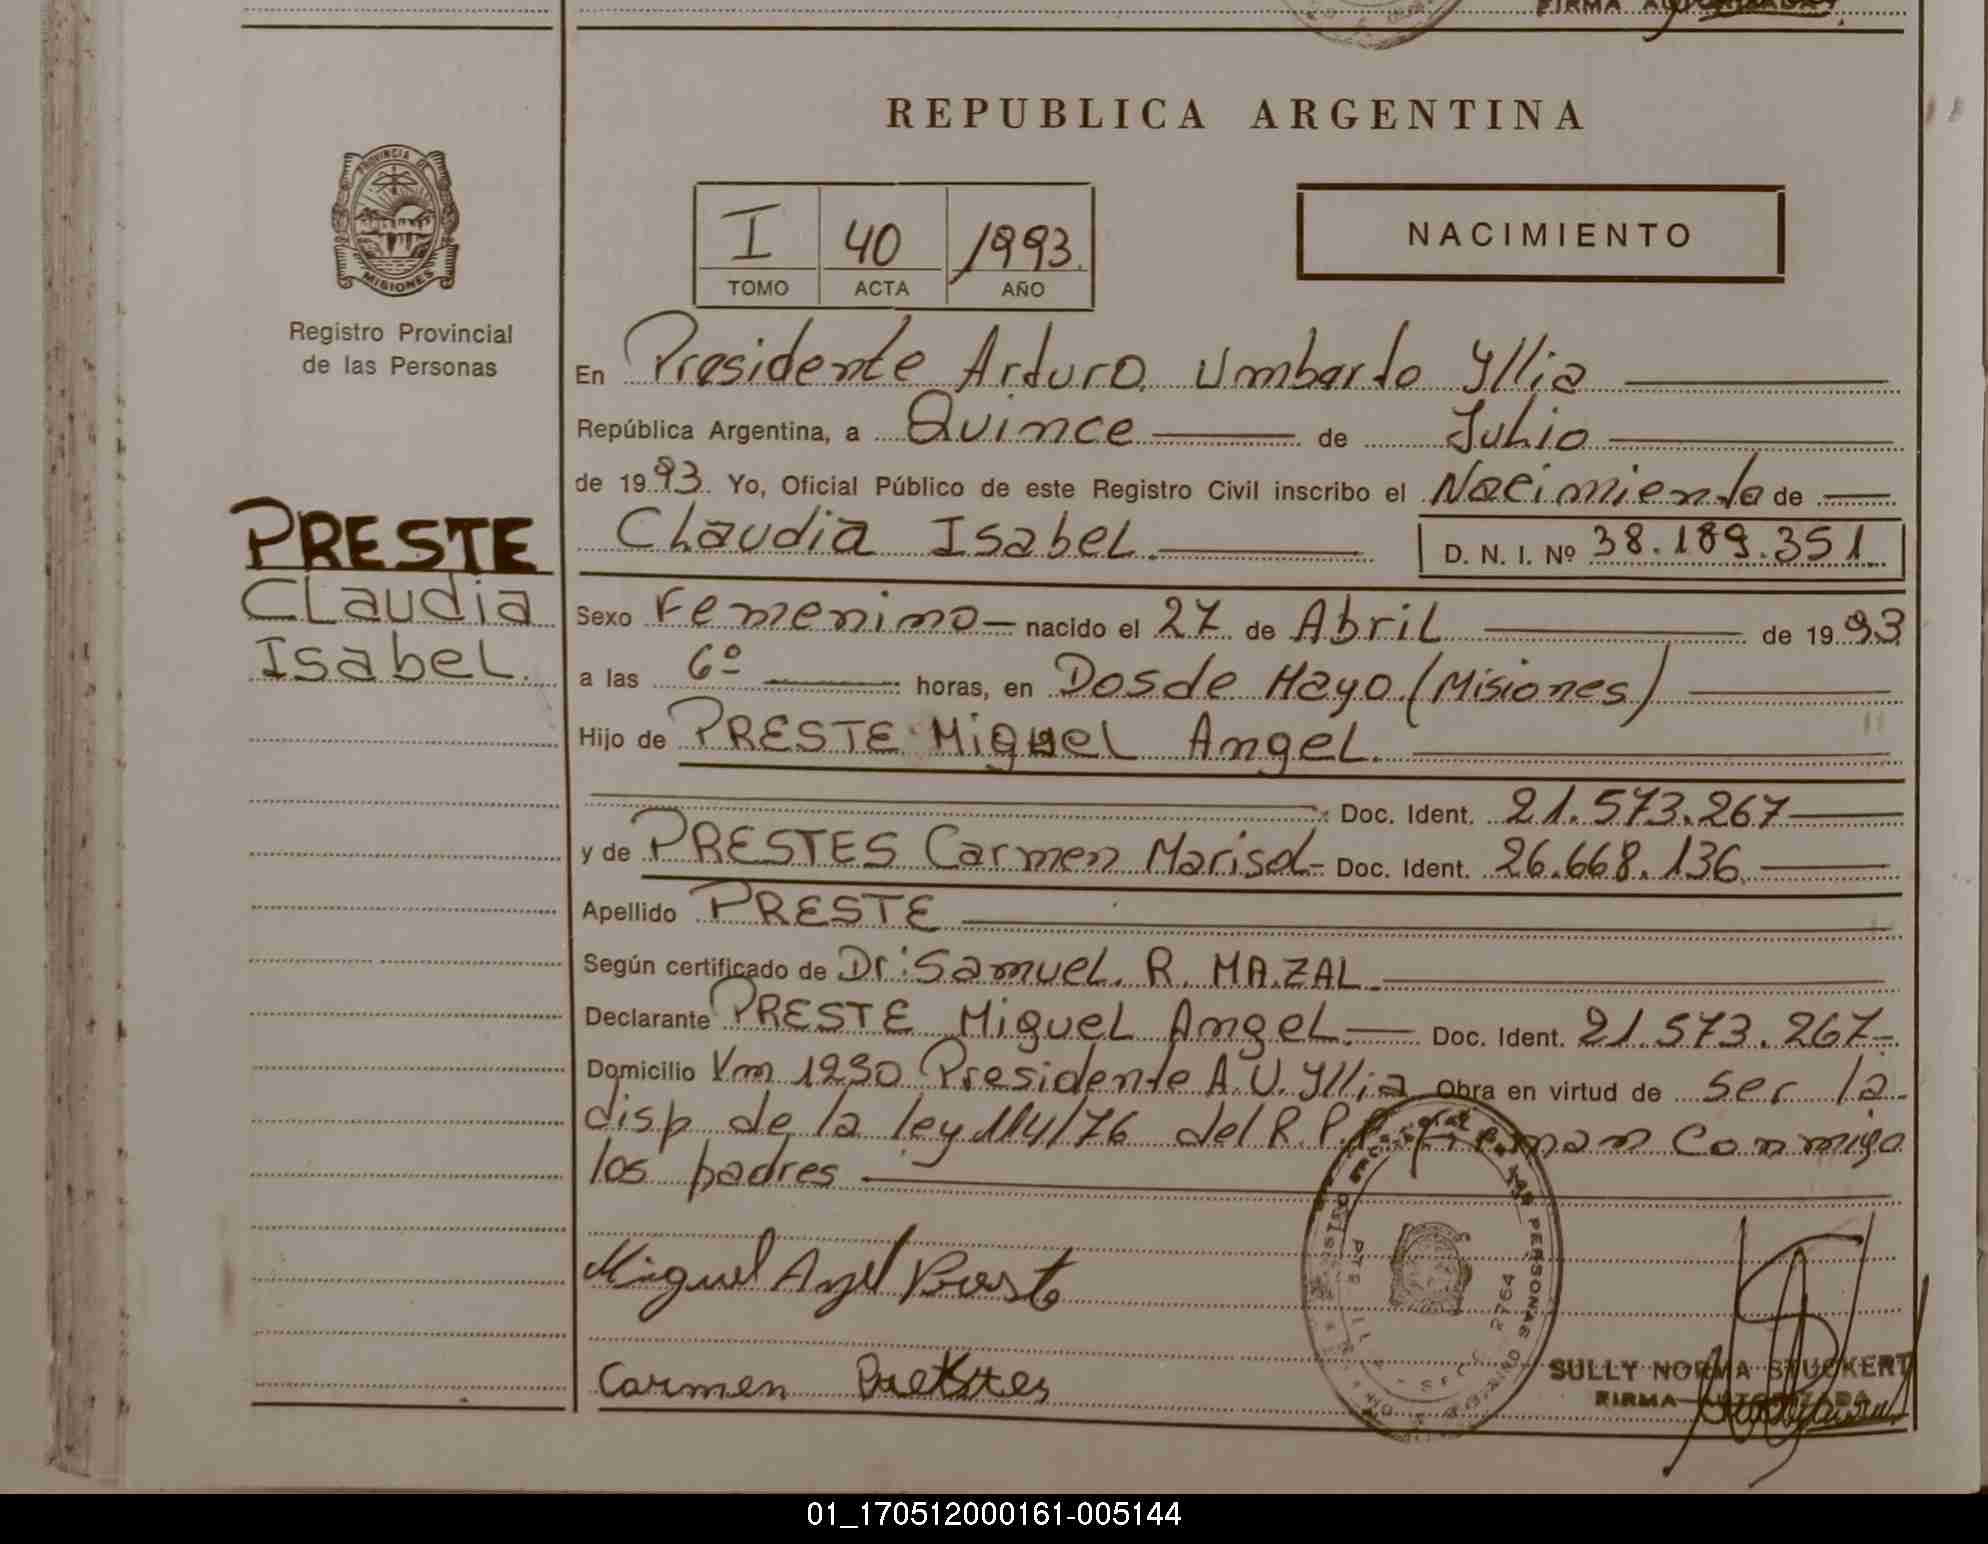 FIRMA AUTORIZADA
REPUBLICA ARGENTINA
PROVINCIA DE
MISIONES
Registro Provincial
de las Personas
I 40 1993.
TOMO ACTA AÑO
NACIMIENTO
En Presidente Arturo Umberto Yllia
República Argentina, a Quince de Julio
de 1993. Yo, Oficial Público de este Registro Civil inscribo el Nacimiento de
Claudia Isabel. D. N. I. Nº 38.189.351
PRESTE
Claudia
Isabel.
Sexo Femenino nacido el 27 de Abril de 1993
a las 6º horas, en Dos de Mayo (Misiones)
Hijo de PRESTE Miguel Angel.
Doc. Ident. 21.573.267
y de PRESTES Carmen Marisol - Doc. Ident. 26.668.136
Apellido PRESTE
Según certificado de Dr: Samuel. R. MAZAL
Declarante PRESTE Miguel Angel. Doc. Ident. 21.573.267
Domicilio Km 1230 Presidente A.U. Yllia Obra en virtud de ser la
disp de la ley 114/76 del R.P.P. Firman conmigo
los padres
Miguel Angel Preste
Carmen Prestes
PERSONAS
2764
SULLY NORMA STUCKERT
FIRMA AUTORIZADA
01_170512000161-005144